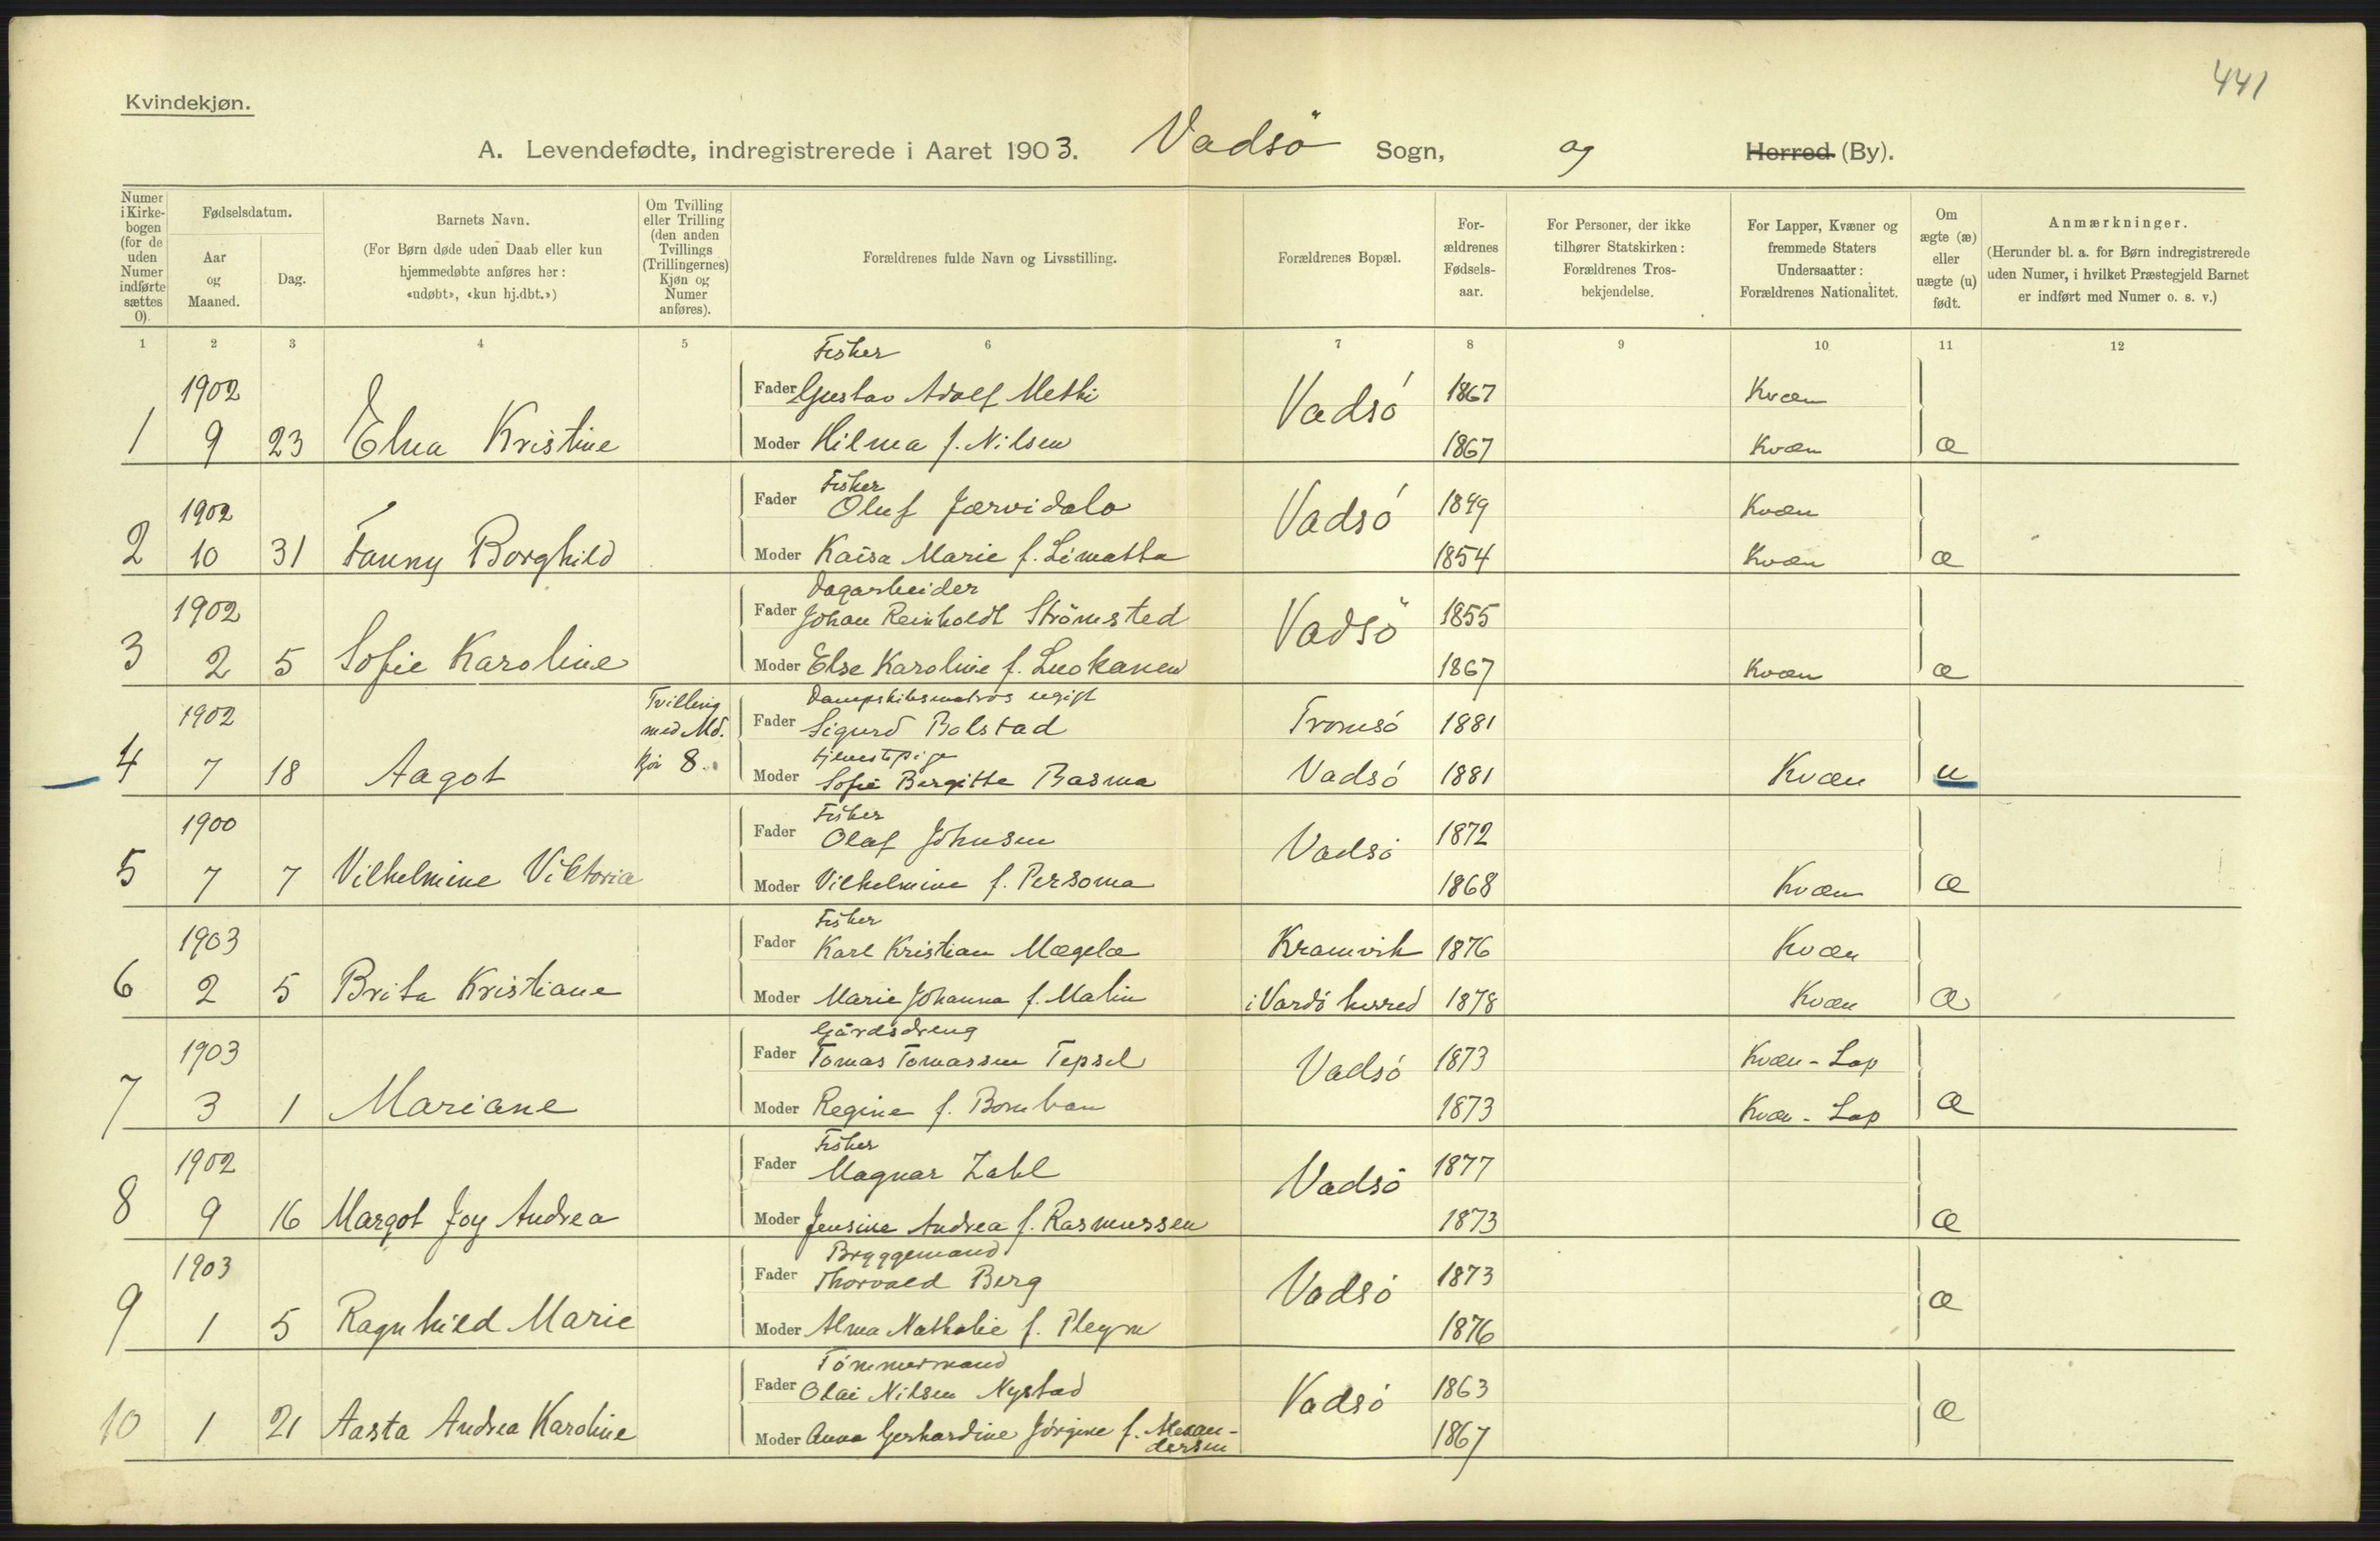 441
Kvindekjøn.
A. Levendefødte, indregistrerede i Aaret 1903. Vadsö Sogn, og Herred (By).
Numer i Kirkebogen (for de uden Numer indførte sættes 0).
Fødselsdatum.
Aar og Maaned.
Dag.
Barnets Navn.
(For Børn døde uden Daab eller kun hjemmedøbte anføres her: «udøbt», «kun hj.dbt.»)
Om Tvilling eller Trilling (den anden Tvillings (Trillingernes) Kjøn og Numer anføres).
Forældrenes fulde Navn og Livsstilling.
Forældrenes Bopæl.
For-ældrenes Fødsels-aar.
For Personer, der ikke tilhører Statskirken: Forældrenes Tros-bekjendelse.
For Lapper, Kvæner og fremmede Staters Undersaatter: Forældrenes Nationalitet.
Om ægte (æ) eller uægte (u) født.
Anmærkninger.
(Herunder bl. a. for Børn indregistrerede uden Numer, i hvilket Præstegjeld Barnet er indført med Numer o. s. v.)
1 2 3 4 5 6 7 8 9 10 11 12
Fisker
1902 Fader Gustav Adolf Metti Vadsó 1867 Kvæn
1 9 23 Elna Kristine Moder Hilma f. Nilsen 1867 Kvæn æ
Fisker
1902 Fader Oluf Jærvidalo Vadsó 1849 Kvæn
2 10 31 Fanny Borghild Moder Kaisa Marie f. Limatta 1854 Kvæn æ
Dagarbeider
1902 Fader Johan Reinholdt Strömsted Vadsö 1855
3 2 5 Sofie Karoline Moder Else Karoline f. Luokanen 1867 Kvæn æ
Tvilling med Md. Kjön 8. Dampskibsmatros ugift
1902 Fader Sigurd Bolstad Tromsó 1881
tjenestepige
4 7 18 Aagot Moder Sofie Bergitte Basma Vadsó 1881 Kvæn u
Fisker
1900 Fader Olaf Johnsen Vadsó 1872
5 7 7 Vilhelmine Viktoria Moder Vilhelmine f. Persoma 1868 Kvæn æ
Fisker
1903 Fader Karl Kristian Mægelæ Kramvik 1876 Kvæn
6 2 5 Brita Kristiane Moder Marie Johanna f. Malin i Vardó herred 1878 Kvæn æ
Gårdsdreng
1903 Fader Tomas Tomassen Tepsel Vadsó 1873 Kvæn - Lap
7 3 1 Mariane Moder Regine f. Bomban 1873 Kvæn - Lap æ
Fisker
1902 Fader Magnar Zahl Vadsó 1877
8 9 16 Margot Joy Andrea Moder Jensine Andrea f. Rasmussen 1873 æ
Bryggemand
1903 Fader Thorvald Berg Vadsó 1873
9 1 5 Ragnhild Marie Moder Alma Nathalie f. Pleym 1876 æ
Tómmermand
Fader Olai Nilsen Nystad Vadsó 1863
10 1 21 Aasta Andrea Karoline Moder Anna Gerhardine Jórgine f. Alexan-dersen 1867 æ